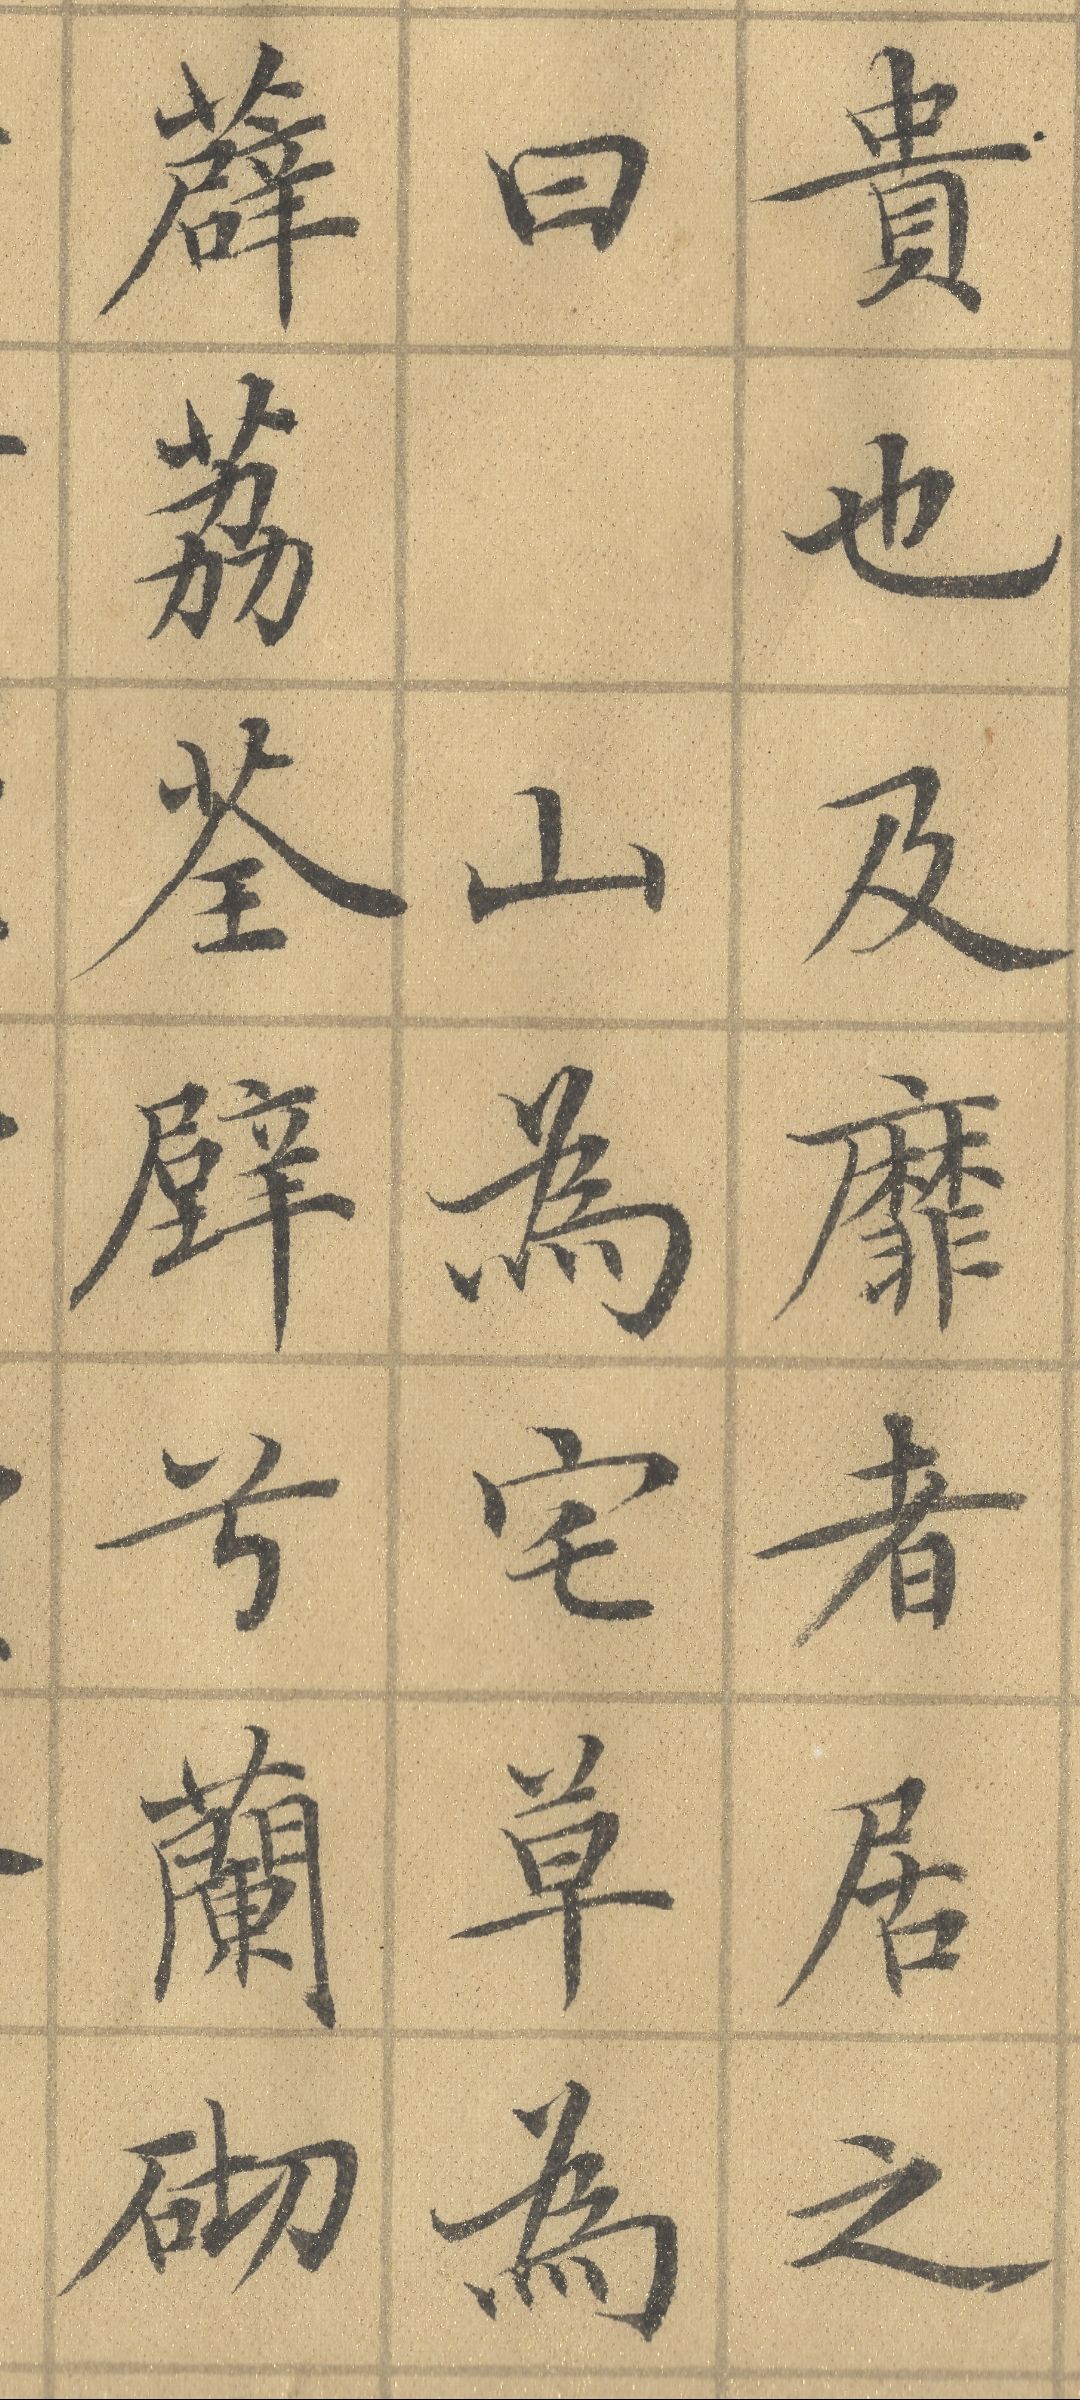 貴也及靡者居之
曰 山為宅草為
薜荔荃壁兮蘭砌